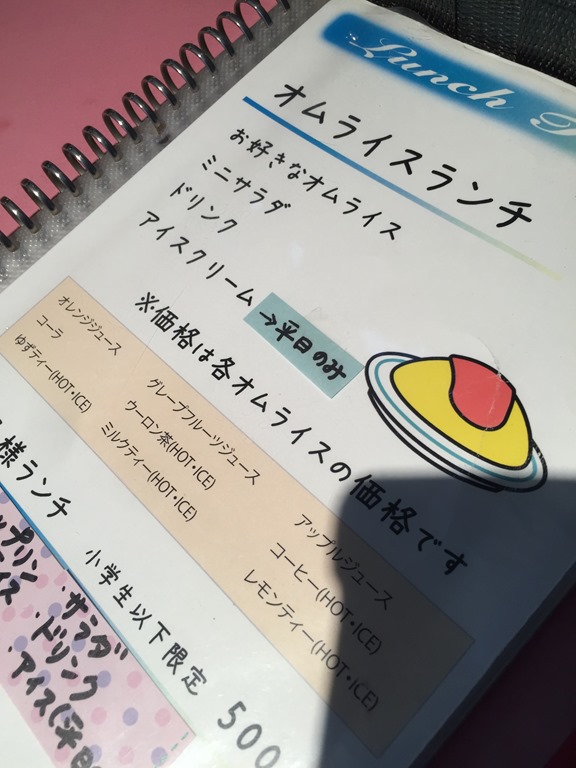 Lunch
オムライスランチ
お好きなオムライス
ミニサラダ
ドリンク
アイスクリーム →平日のみ
※価格は各オムライスの価格です
オレンジジュース グレープフルーツジュース アップルジュース
コーラ ウーロン茶(HOT・ICE) コーヒー(HOT・ICE)
ゆずティー(HOT・ICE) ミルクティー(HOT・ICE) レモンティー(HOT・ICE)
様ランチ 小学生以下限定 500
プリン ・サラダ
イス ・ドリンク
・アイス(平日